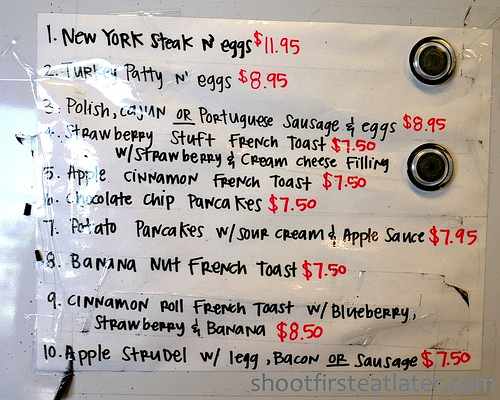 1. New York Steak N' eggs $11.95
2. Turkey Patty N' eggs $8.95
3. Polish, Cajun OR Portuguese Sausage & eggs $8.95
4. Strawberry Stuft French Toast $7.50
w/Strawberry & Cream cheese Filling
5. Apple Cinnamon French Toast $7.50
6. Chocolate Chip Pancakes $7.50
7. Potato Pancakes w/sour cream & Apple Sauce $7.95
8. Banana Nut French Toast $7.50
9. Cinnamon Roll French Toast w/ Blueberry,
Strawberry & Banana $8.50
10. Apple Strudel w/ 1egg, Bacon OR Sausage $7.50
shootfirsteatlater.com